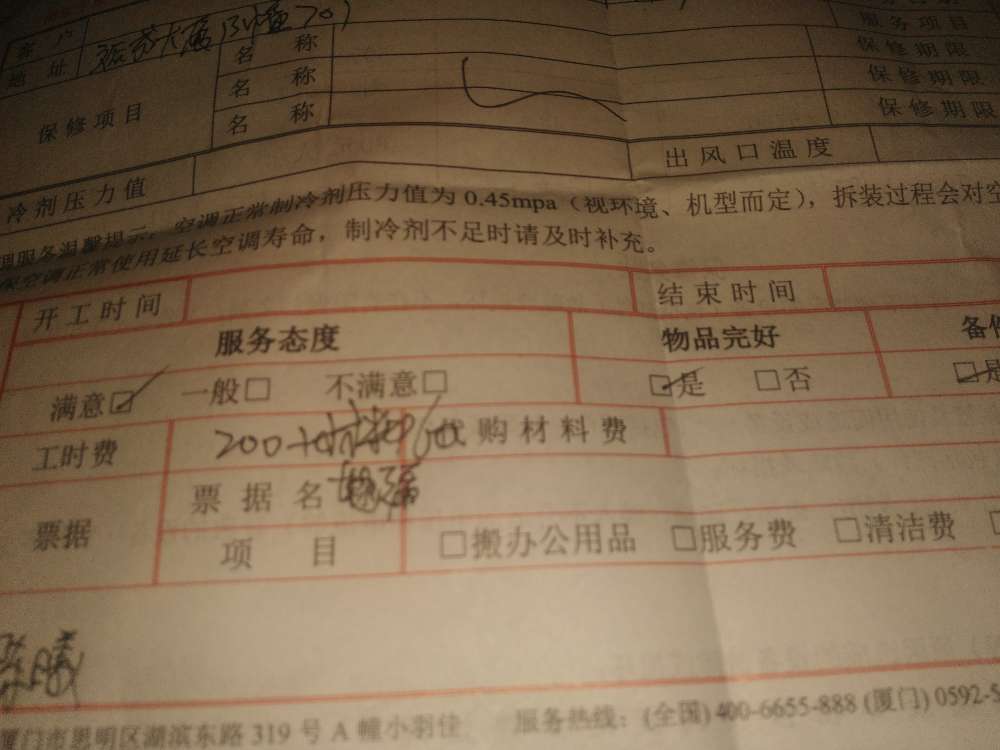 客户
服务项目
地址 名称 保修期限
保修项目 名称 保修期限
名称 保修期限
冷剂压力值 出风口温度
空调正常制冷剂压力值为 0.45mpa（视环境、机型而定），拆装过程会对空
保空调正常使用延长空调寿命，制冷剂不足时请及时补充。
开工时间 结束时间
服务态度 物品完好
满意☑ 一般□ 不满意□ ☑是 □否 ☑是
工时费 200 代购材料费
票据 票据名
项目 □搬办公用品 □服务费 □清洁费
厦门市思明区湖滨东路 319 号 A 幢小羽佳 服务热线：(全国) 400-6655-888 (厦门) 0592-5